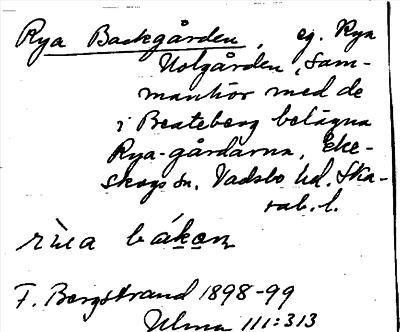 Rya Backgården, eg. Rya
Nolgården, Sam-
manhör med de
i Beateberg belägna
Rya-gårdarna, Eke-
skogs sn, Vadsbo hd. Ska-
rab. l.
F. Bergstrand 1898-99
Ulma 111:313